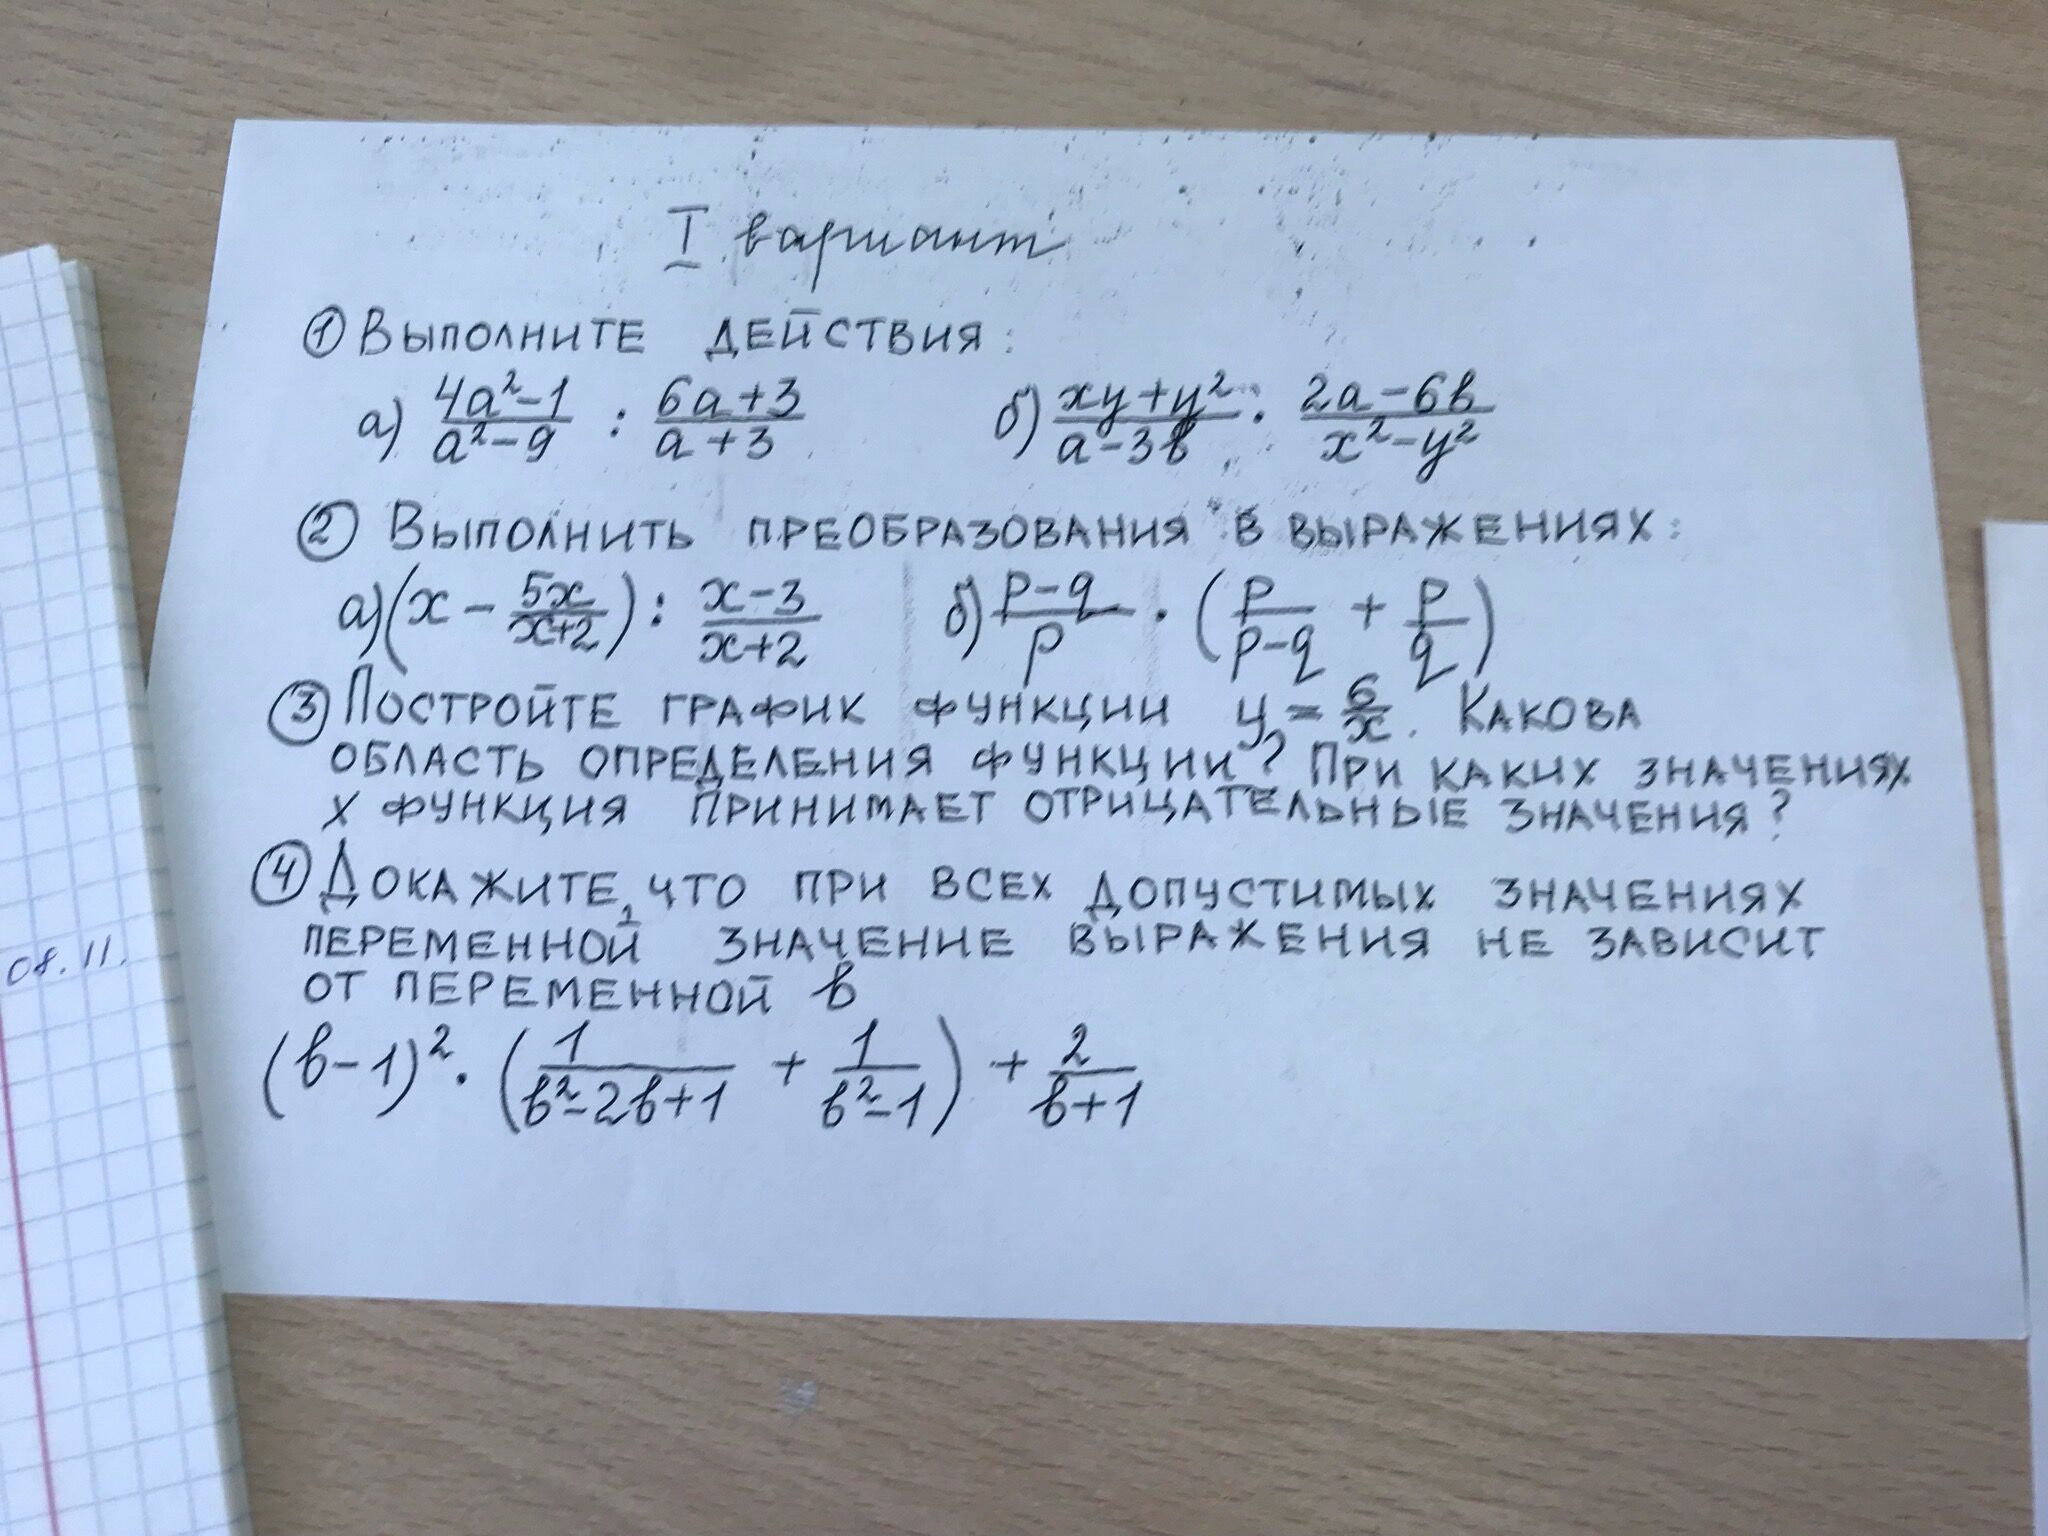 I вариант
① Выполните действия:
а) (4a²-1)/(a²-9) : (6a+3)/(a+3) б) (xy+y²)/(a-3b) · (2a-6b)/(x²-y²)
② Выполнить преобразования в выражениях:
а) (x - 5x/(x+2)) : (x-3)/(x+2) б) (p-q)/p · (p/(p-q) + p/q)
③ Постройте график функции y = 6/x. Какова
область определения функции? При каких значениях
х функция принимает отрицательные значения?
④ Докажите, что при всех допустимых значениях
переменной значение выражения не зависит
от переменной b
(b-1)² · (1/(b²-2b+1) + 1/(b²-1)) + 2/(b+1)
08.11.